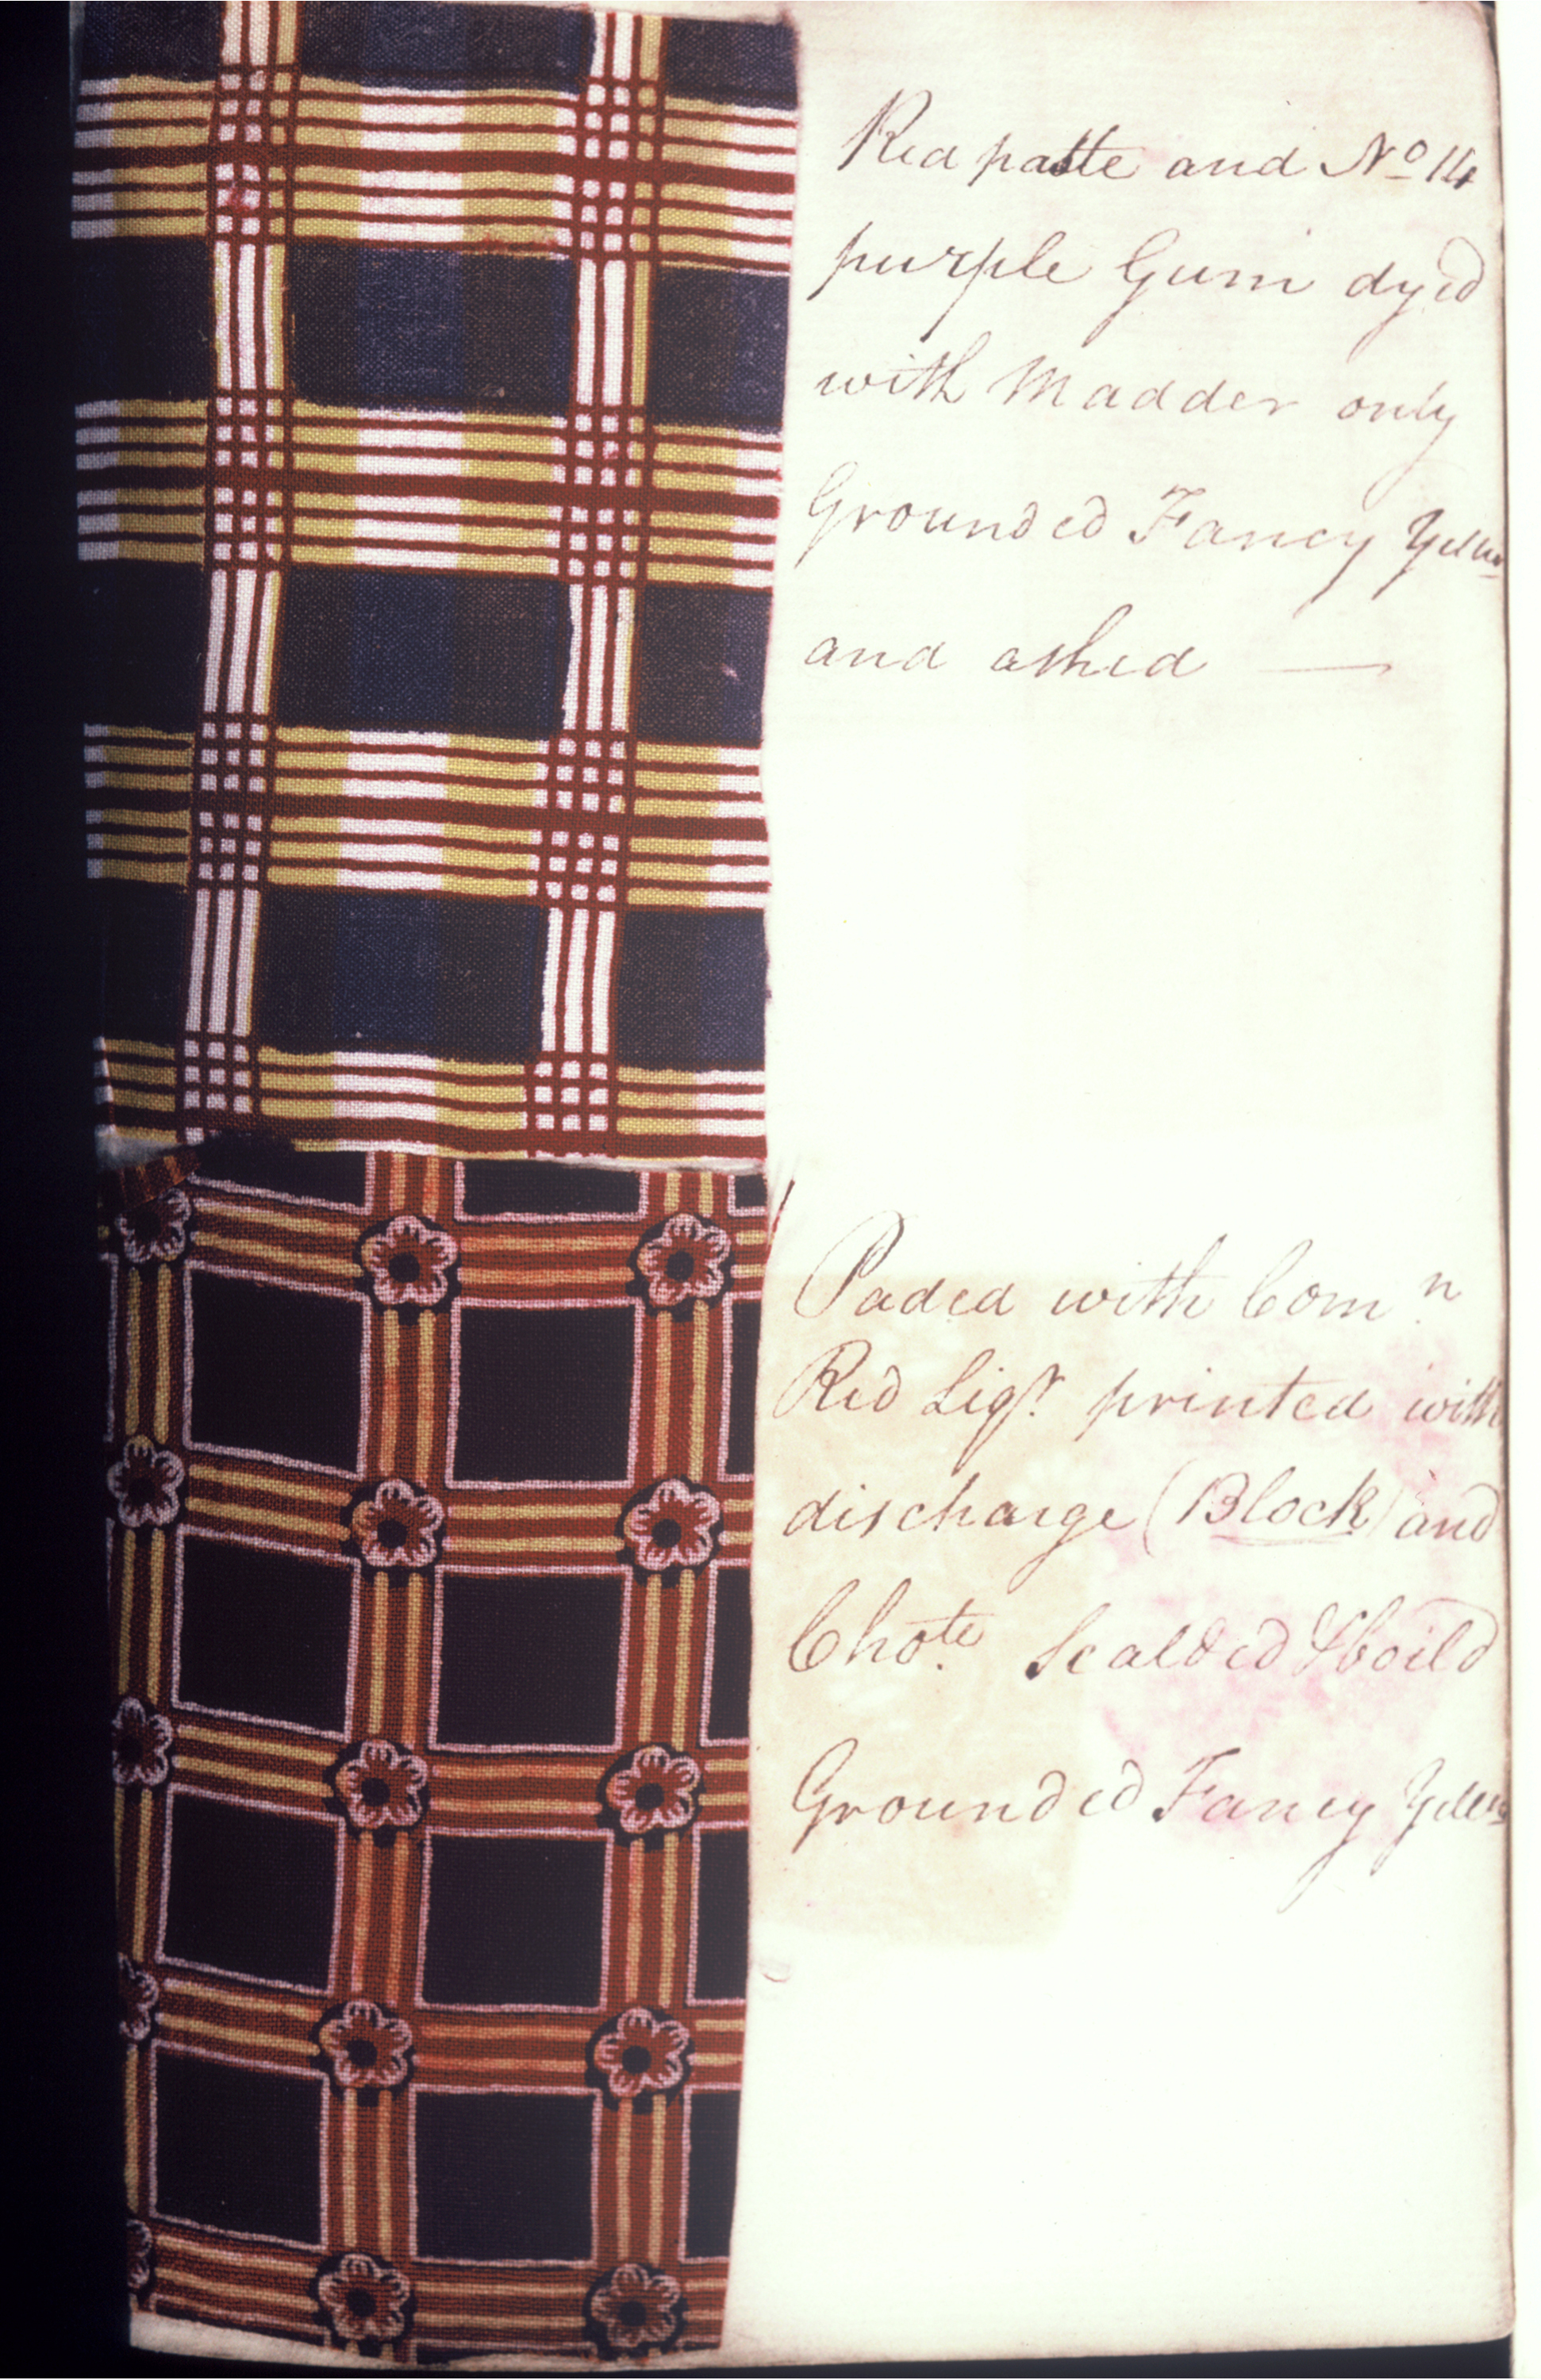 Red paste and No 14
purple Gum dyed
with Madder only
Grounded Fancy Yelw
and ashed —
Paded with Comn
Red Liqr. printed with
discharge (Block) and
Chote. Scalded & boild
Grounded Fancy Yelw